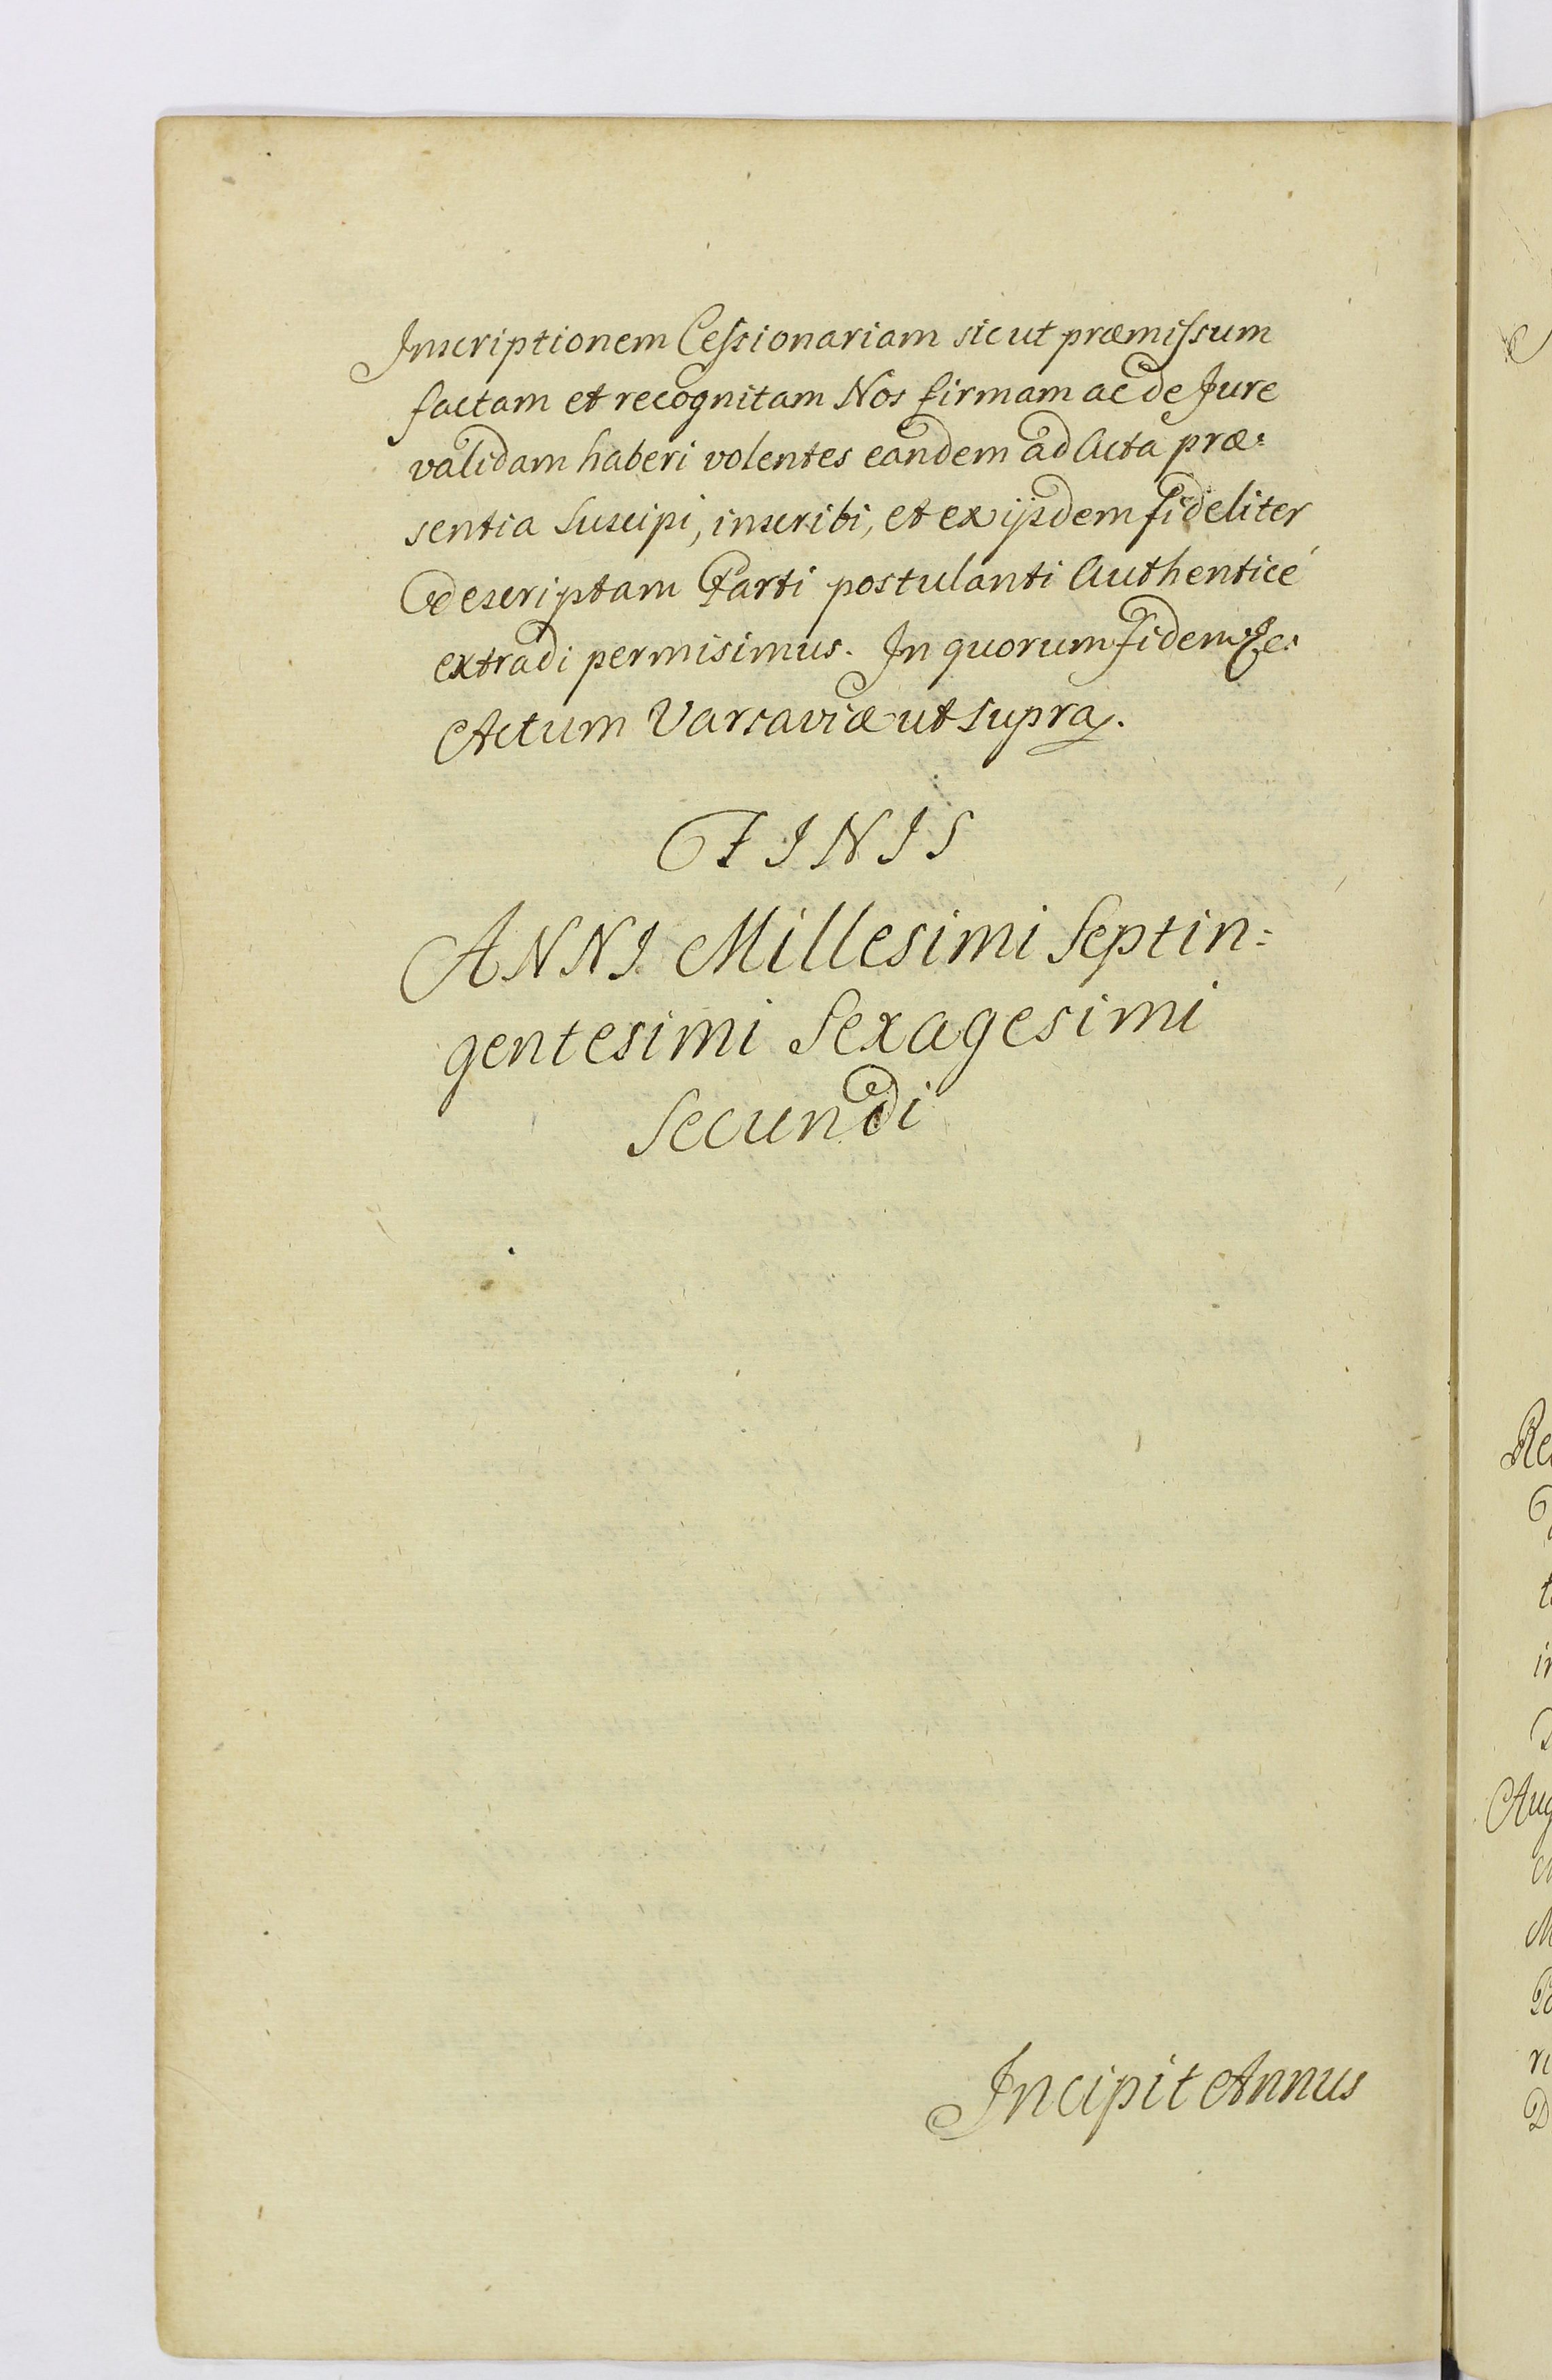 Inscriptionem Cessionariam sicut præmissum
factam et recognitam Nos firmam ac de Jure
validam haberi volentes eandem ad Acta præ=
sentia Suscipi, inscribi, et ex ijsdem fideliter
descriptam Parti postulanti Authenticé
extradi permisimus. In quorum fidem &c.
Actum Varsaviæ ut supra.
FINIS
ANNI Millesimi Septin=
gentesimi Sexagesimi
Secundi
Incipit Annus